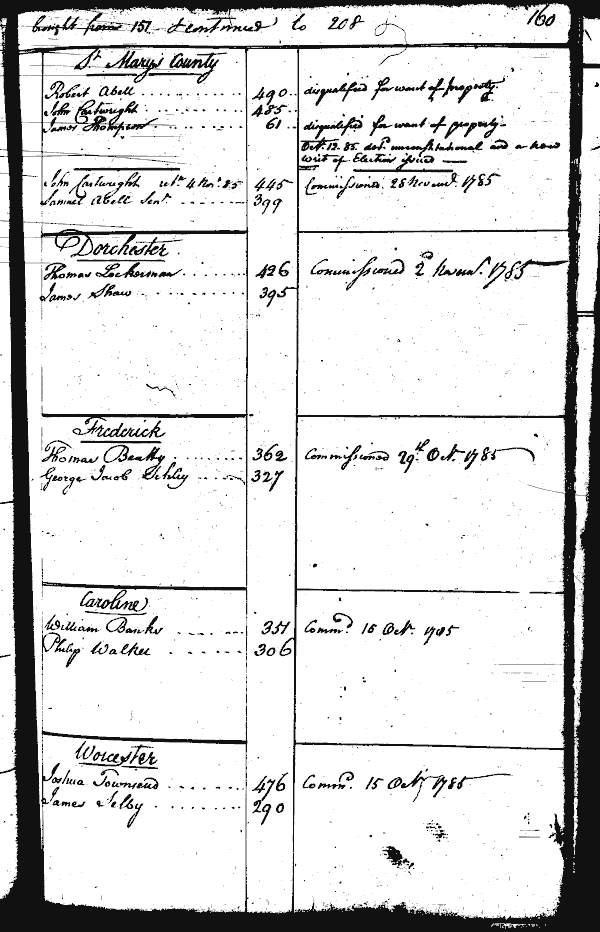 brought from 151 & continued to 208
160
St. Mary's County
Robert Abell 490 disqualified for want of property.
John Cartwright 485
James Thompson 61 disqualified for want of property-
Oct. 12. 85. unconstitutional and a new
writ of Election issued —
John Cartwright 4 Nov. 85 445 Commissioned 28 Novem. 1785
Samuel Abell Senr. 399
Dorchester
Thomas Lockerman 426 Commissioned 2d Novem. 1785
James Shaw 395
Frederick
Thomas Beatty 362 Commissioned 29th Oct. 1785
George Jacob Schley 327
Caroline
William Banks 351 Commd. 15 Oct. 1785
Philip Walker 306
Worcester
Joshua Townsend 476 Commd. 15 Oct. 1785
James Selby 290